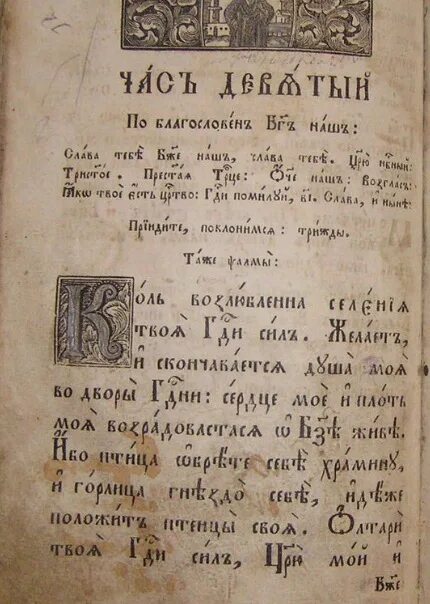 ЧА́СЪ ДЕВѦ́ТЫЙ
По благословенъ Бг҃ъ нашъ:
Слава тебѣ Бж҃е нашъ, слава тебѣ. Цр҃ю нб҃ный:
Трист҃ое. Прест҃ая Трⷪ҇це: Ѻ҆́ч҃е нашъ: Возгласъ:
Ꙗ҆́кѡ твое есть цр҃тво: Гд҃и помилуй, в҃і. Слава, и нынѣ:
Прїидите, поклонимсѧ: трижды.
Таже ѱалмы:
Ко́ль возлю́бленна селе́нїѧ
твоѧ̀ Гд҃и си́лъ. Жела́етъ
и҆ сконча́ваетсѧ дꙋша̀ моѧ̀
во дворы̀ Гд҃ни: се́рдце моѐ и҆ пло́ть
моѧ̀ возра́довастасѧ ѡ҆ Бз҃ѣ жи́вѣ.
И҆́бо пти́ца ѡ҆брѣ́те себѣ̀ хра́минꙋ,
и҆ го́рлица гнѣздо̀ себѣ̀, и҆дѣ́же
положи́тъ птенцы̀ своѧ̀. Ѻ҆лтари̑
твоѧ̀ Гд҃и си́лъ, Цр҃ю̀ мо́й и҆
Бж҃е